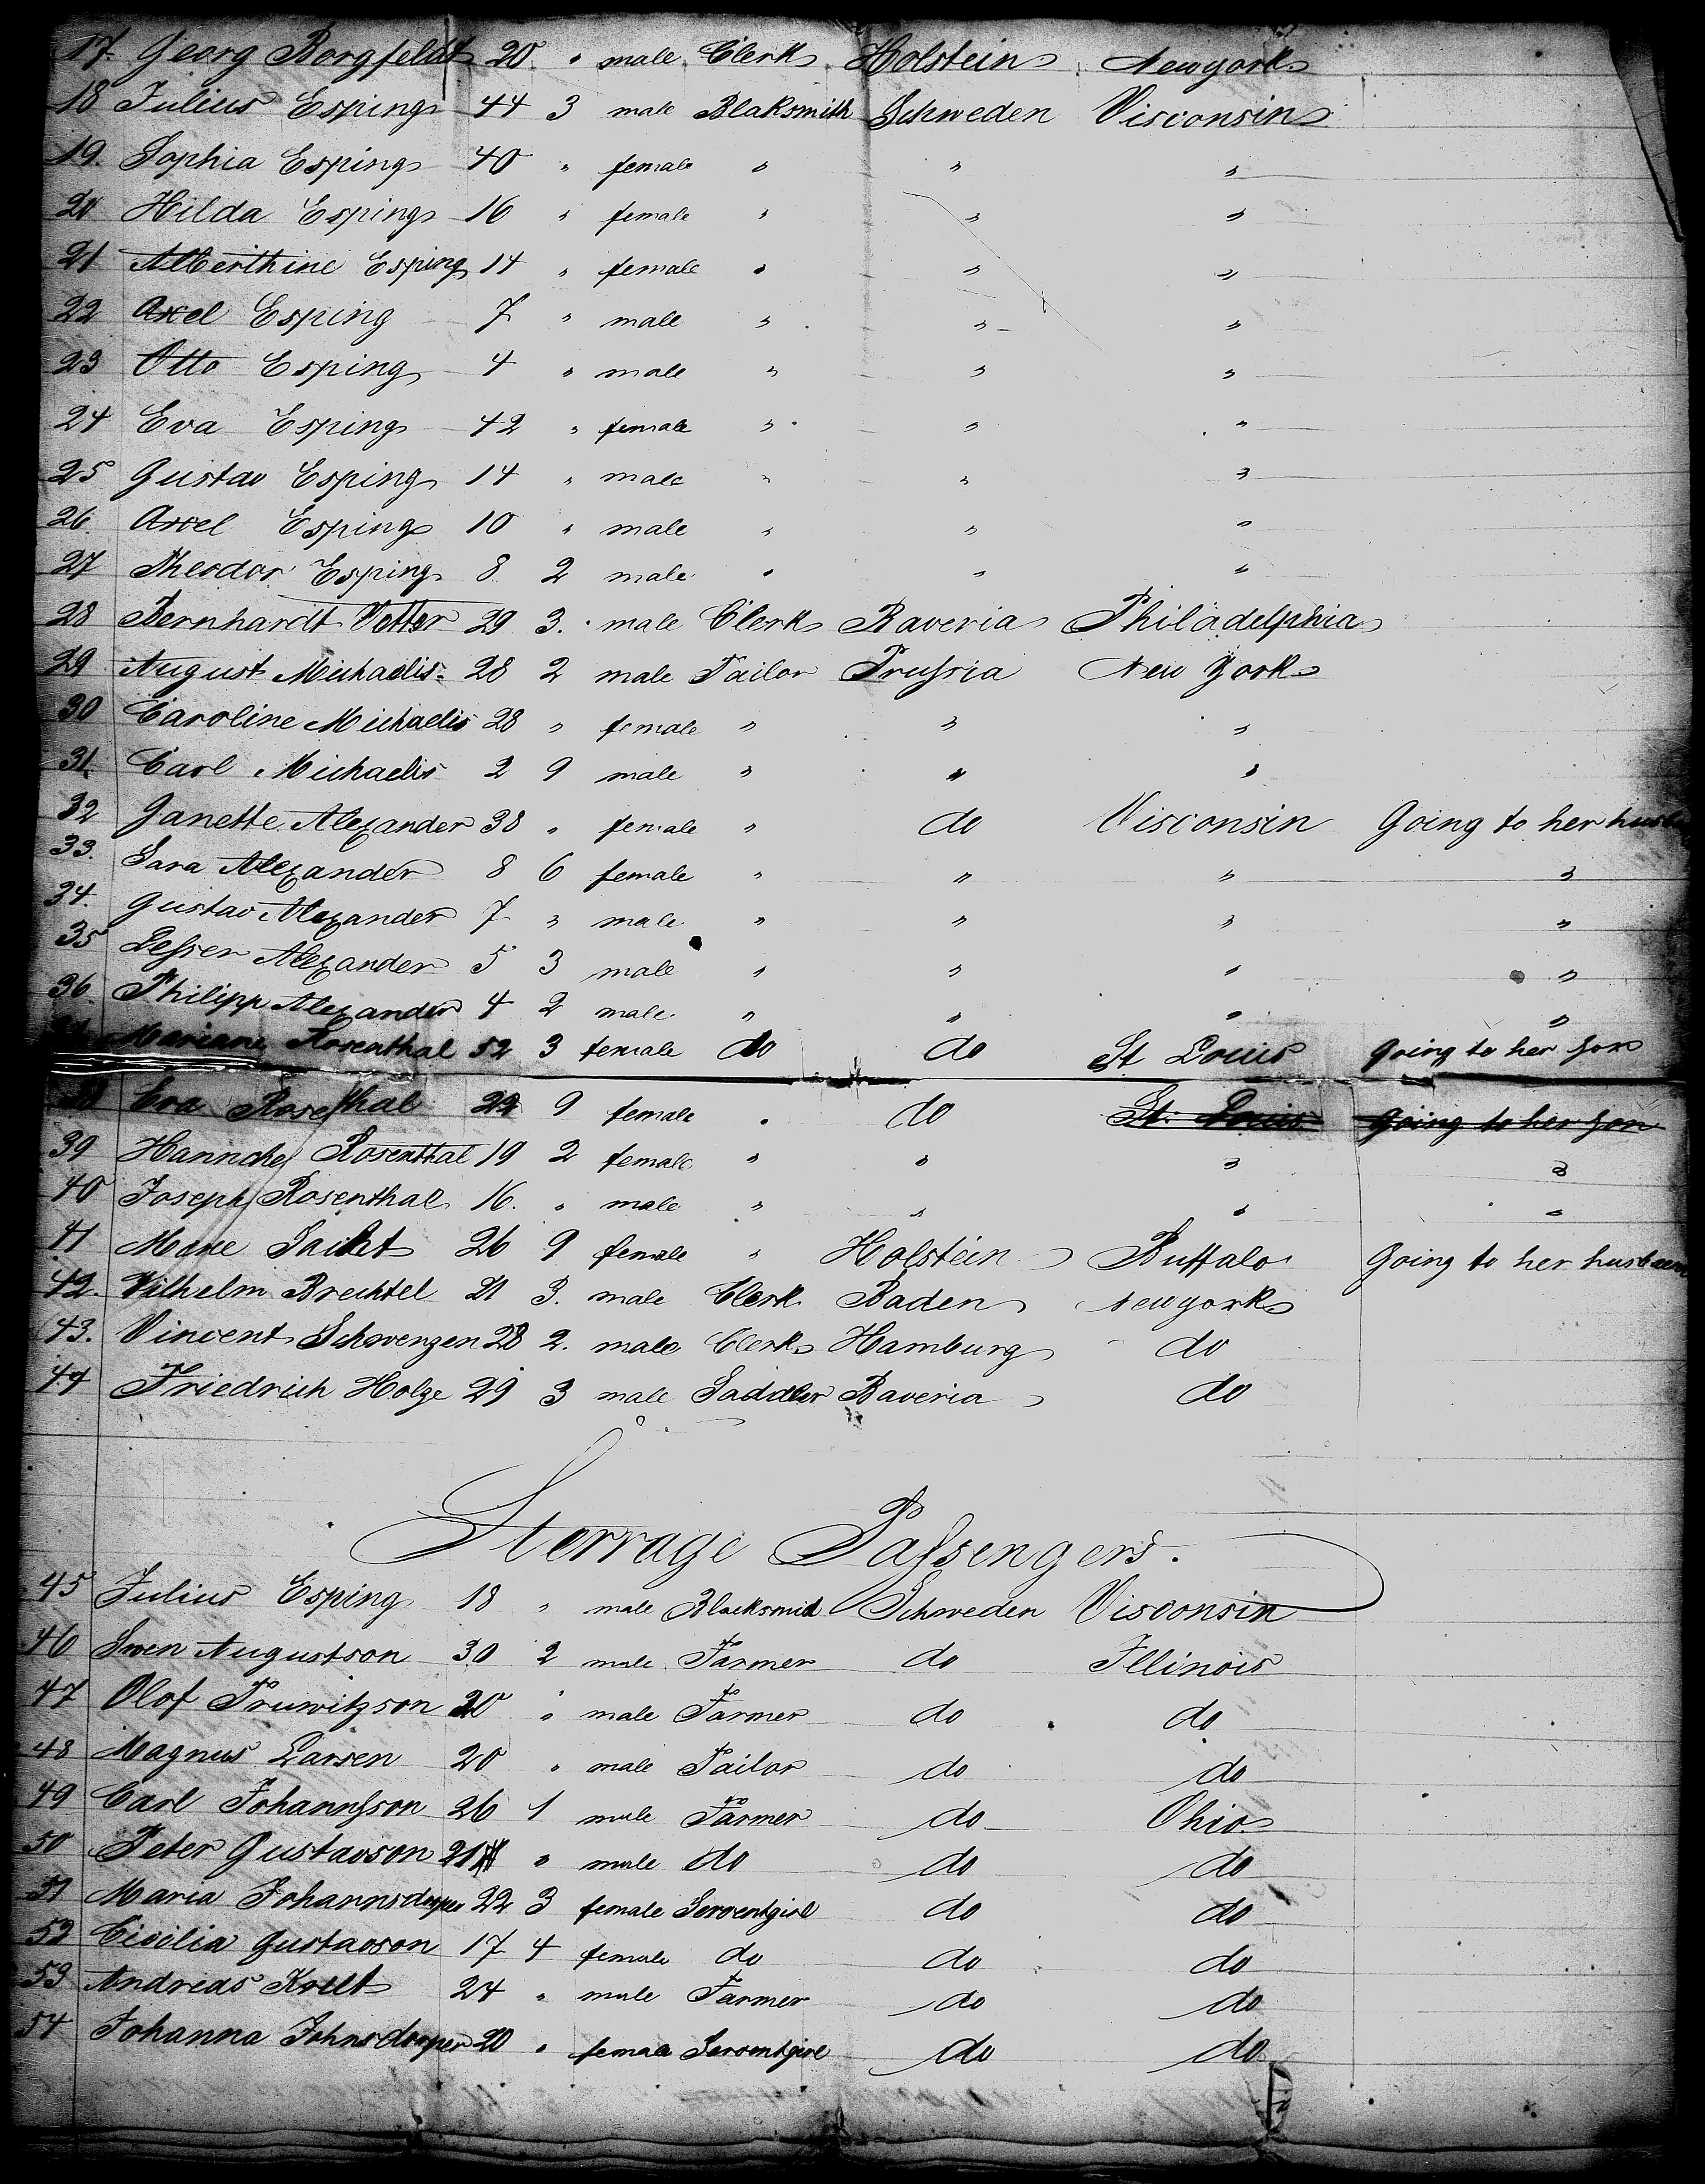 17. Georg Borgfeldt 20 " male Clerk Holstein Newyork
18 Julius Esping 44 3 male Blaksmith Schweden Visconsin
19. Sophia Esping 40 " female " " "
20 Hilda Esping 16 " female " " "
21 Alberthine Esping 14 " female " " "
22 Axel Esping 7 " male " " "
23 Otto Esping 4 " male " " "
24 Eva Esping 42 " female " " "
25 Gustav Esping 14 " male " " "
26. Axel Esping 10 " male " " "
27 Theodor Esping 8 2 male " " "
28 Bernhardt Vetter 29 3. male Clerk Baveria Philadelphia
29 August Michaelis 28 2 male Tailor Prussia New York
30 Caroline Michaelis 28 " female " " "
31. Carl Michaelis 2 9 male " " "
32 Janette Alexander 38 " female " do Visconsin Going to her
33. Sara Alexander 8 6 female " " " "
34. Gustav Alexander 7 " male " " " "
35 Lesser Alexander 5 3 male " " " "
36. Philipp Alexander 4 2 male " " " "
Mariane Rosenthal 52 3 female do do St Louis Going to her son
38 Eva Rosenthal 22 9 female " do St. Louis Going to her son
39 Hannchen Rosenthal 19 2 female " " " "
40 Joseph Rosenthal 16. " male " " " "
41 26 9 female " Holstein Buffalo Going to her husband
42. Vilhelm Brechtel 21 3. male Clerk Baden Newyork
43. Vincent Schwenzen 28 2. male Clerk Hamburg do
44 Friedrich Holze 29 3 male Saddler Baveria do
Sterrage Passengers.
45 Julius Esping 18 " male Blacksmid Schweden Visconsin
46 Swen Augustson 30 2 male Farmer do Illinois
47 Olof Truwitzson 20 " male Farmer do do
48 Magnus Larsen 20 " male Tailor do do
49 Carl Johannsson 26 1 male Farmer do Ohio
50 Peter Gustavson 21 " male do do do
51 Maria 22 3 female Serventgirl do do
52 Cicilia Gustavson 17 4 female do do do
53 Andreas 24 " male Farmer do do
54 Johanna 20 " female Serventgirl do do